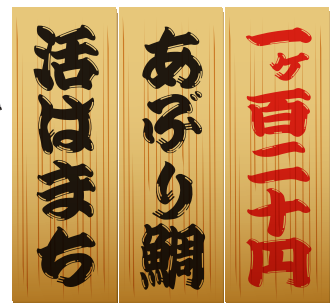 一ヶ百二十円
あぶり鯛
活はまち